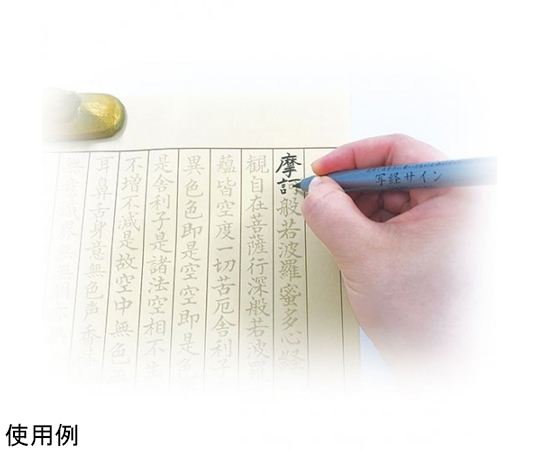 摩訶般若波羅蜜多心経
観自在菩薩行深般若波羅
蘊皆空度一切苦厄舎利子
異色色即是空空即是色
是舎利子是諸法空相不生
不増不減是故空中無色
耳鼻舌身意無色声香味
写経サイン
使用例